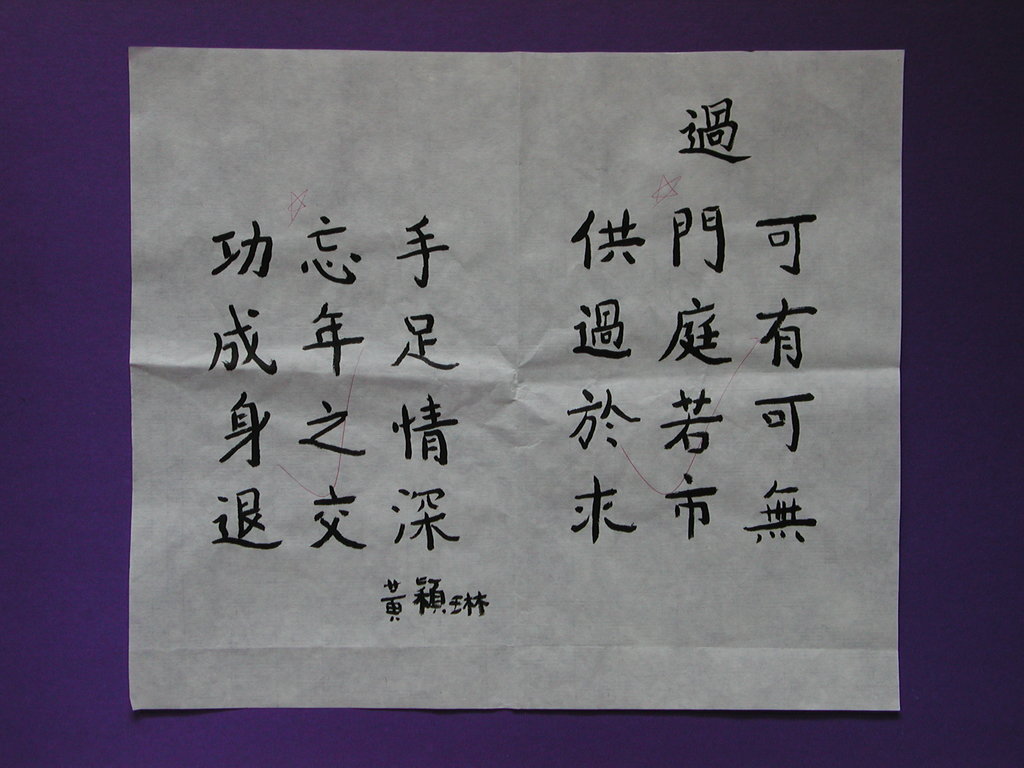 過
可有可無
門庭若市
供過於求
手足情深
忘年之交
功成身退
黃穎琳